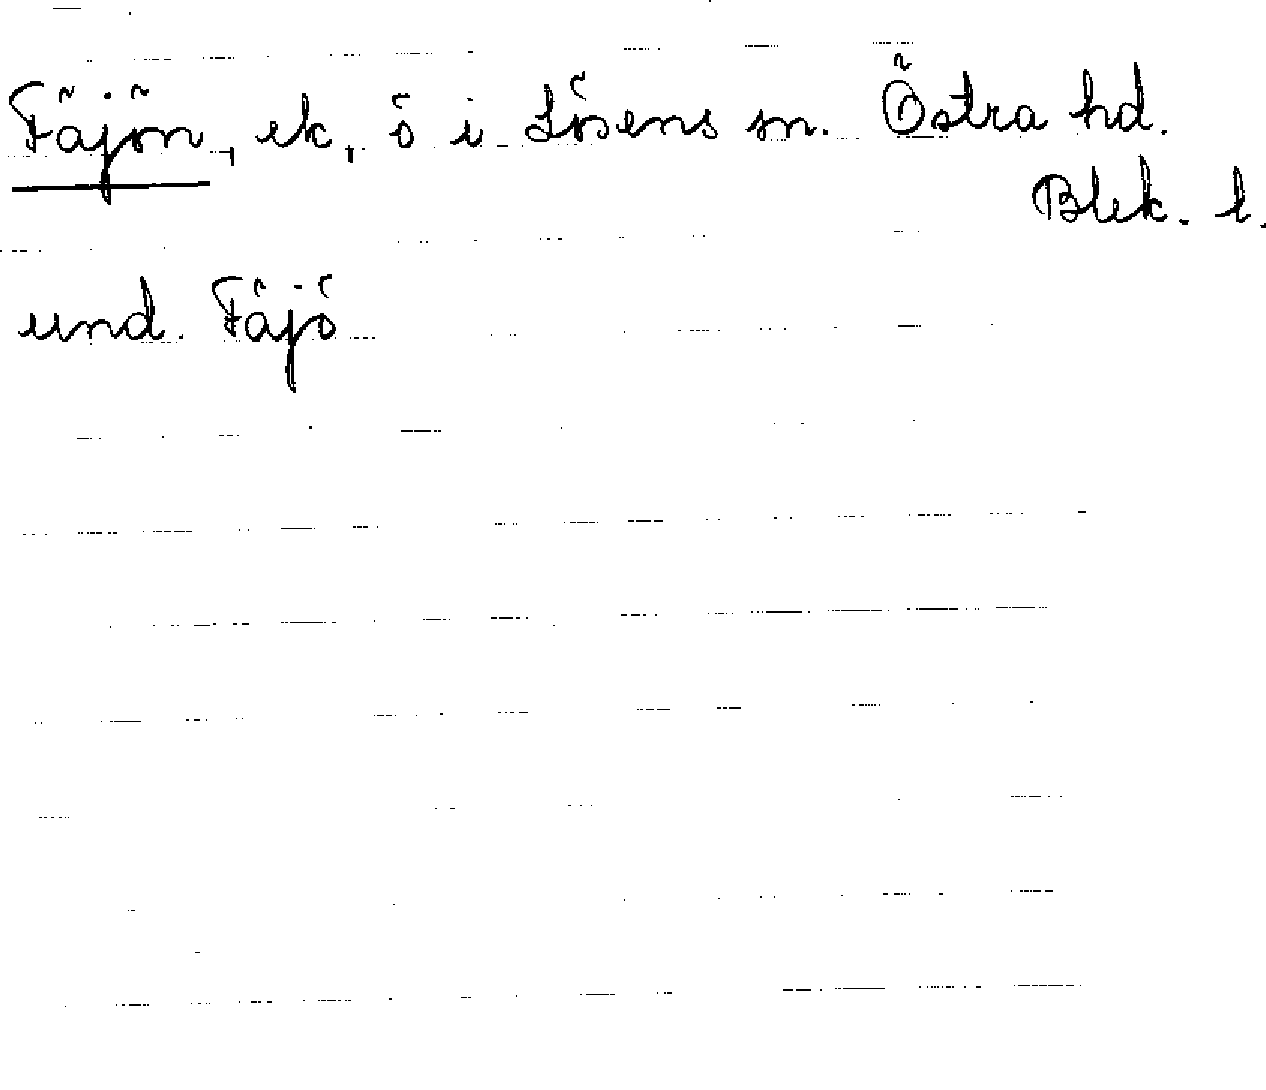 Fäjön, ek, ö i Lösens sn. Östra hd.
Blek. l.
und. Fäjö